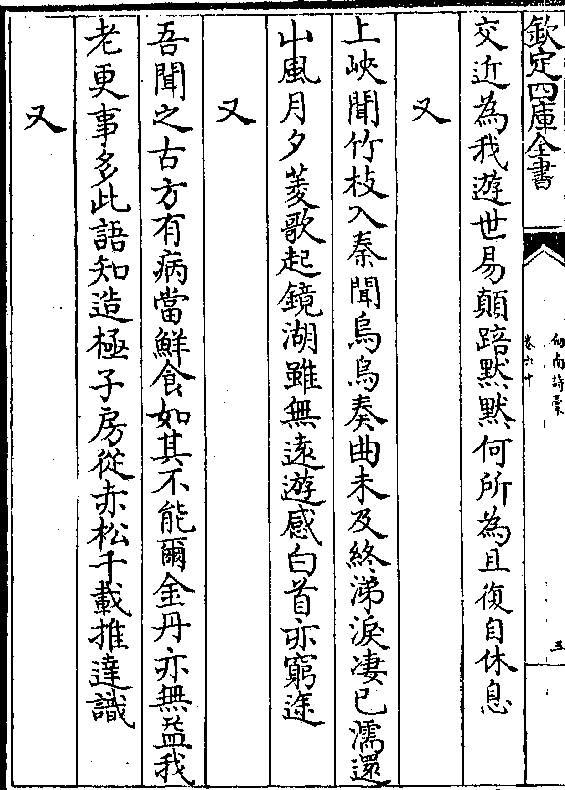 欽定四庫全書
劍南詩稾
卷六十
三
交近為我遊世易顛踣默默何所為且復自休息
又
上峽聞竹枝入秦聞烏烏奏曲未及終涕淚凄已濡還
山風月夕菱歌起鏡湖雖無遠遊感白首亦窮途
又
吾聞之古方有病當鮮食如其不能爾金丹亦無益我
老更事多此語知造極子房從赤松千載推達識
又